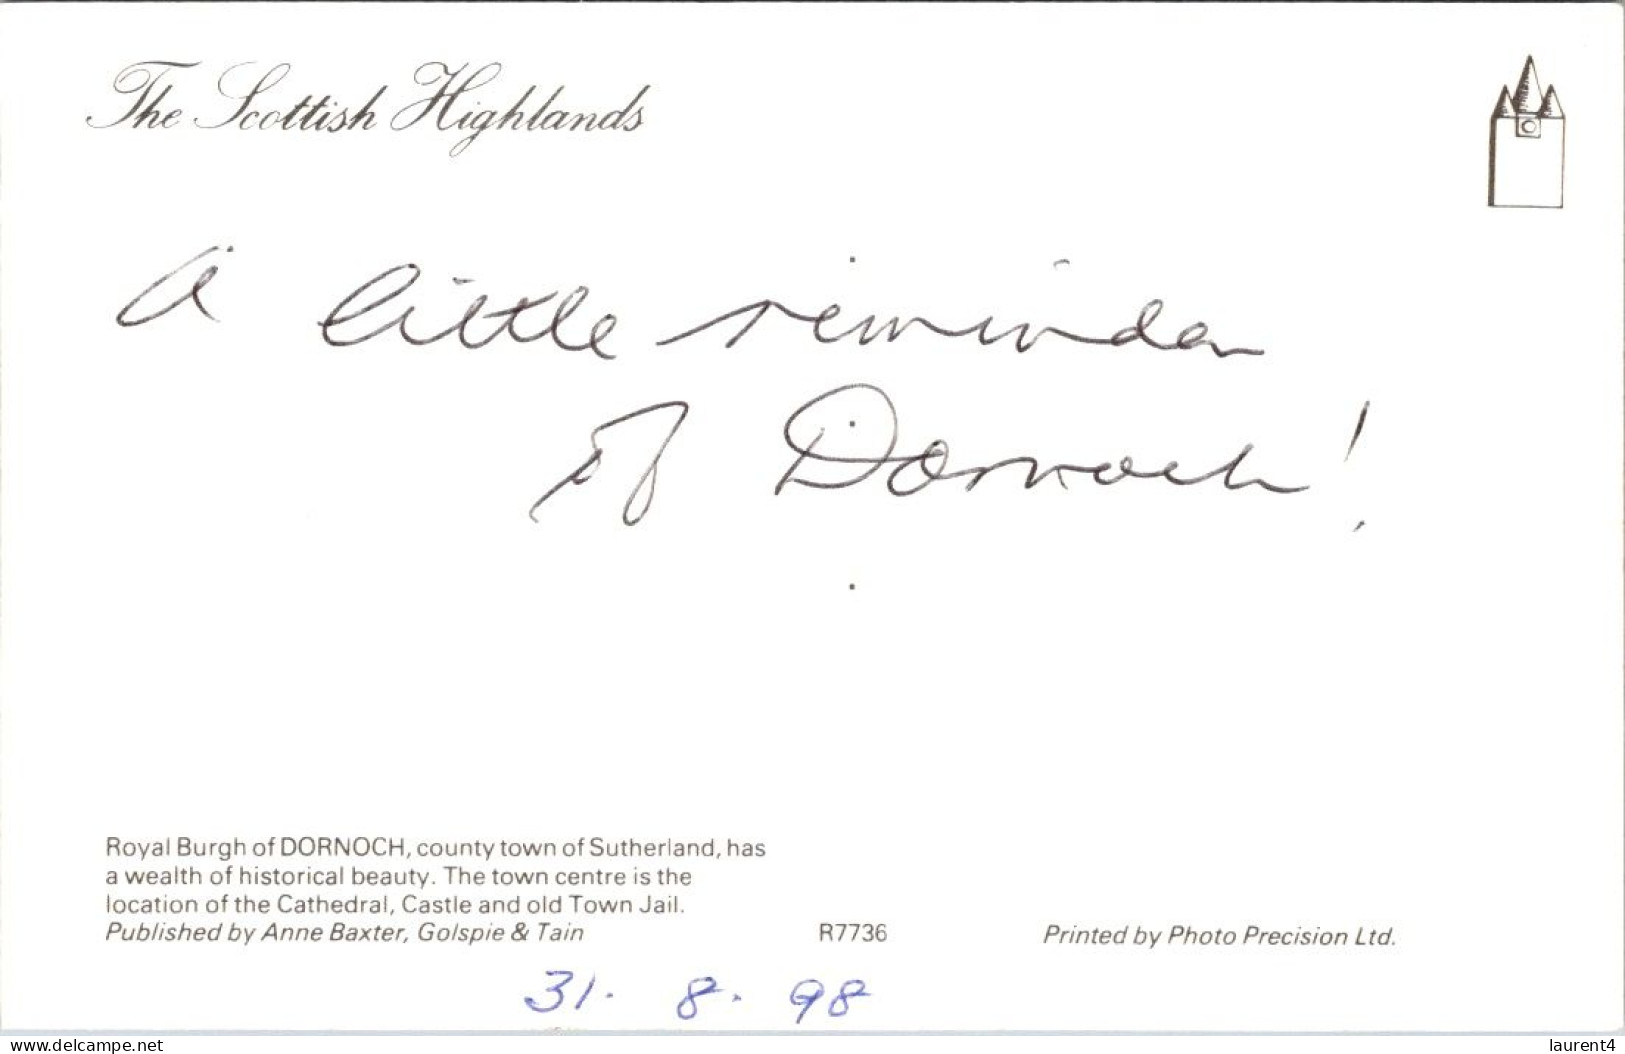 The Scottish Highlands
A little reminder
of Dornoch!
Royal Burgh of DORNOCH, county town of Sutherland, has
a wealth of historical beauty. The town centre is the
location of the Cathedral, Castle and old Town Jail.
Published by Anne Baxter, Golspie & Tain
R7736
Printed by Photo Precision Ltd.
31. 8. 98
www.delcampe.net
laurent4